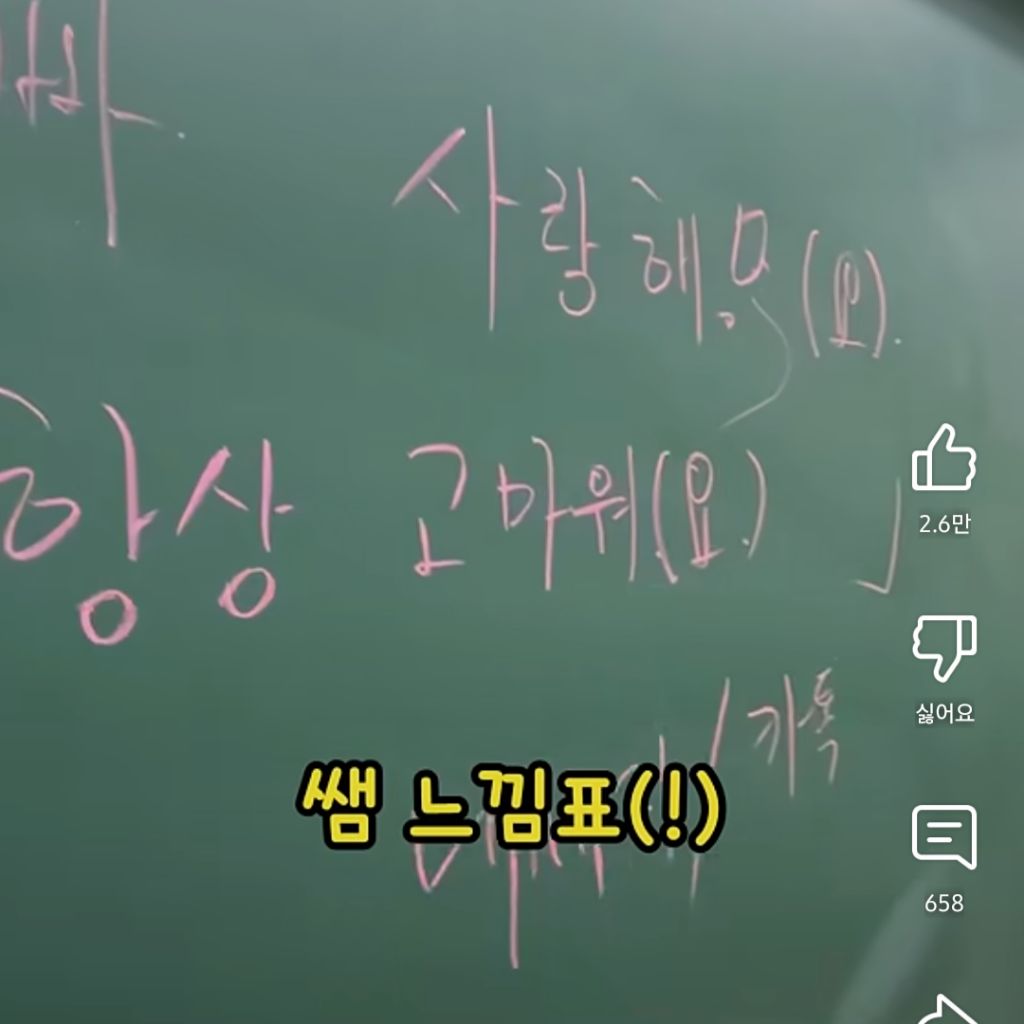 사랑해요(요).
항상 고마워(요.)」
/ 카톡
쌤 느낌표(!)
2.6만
싫어요
658